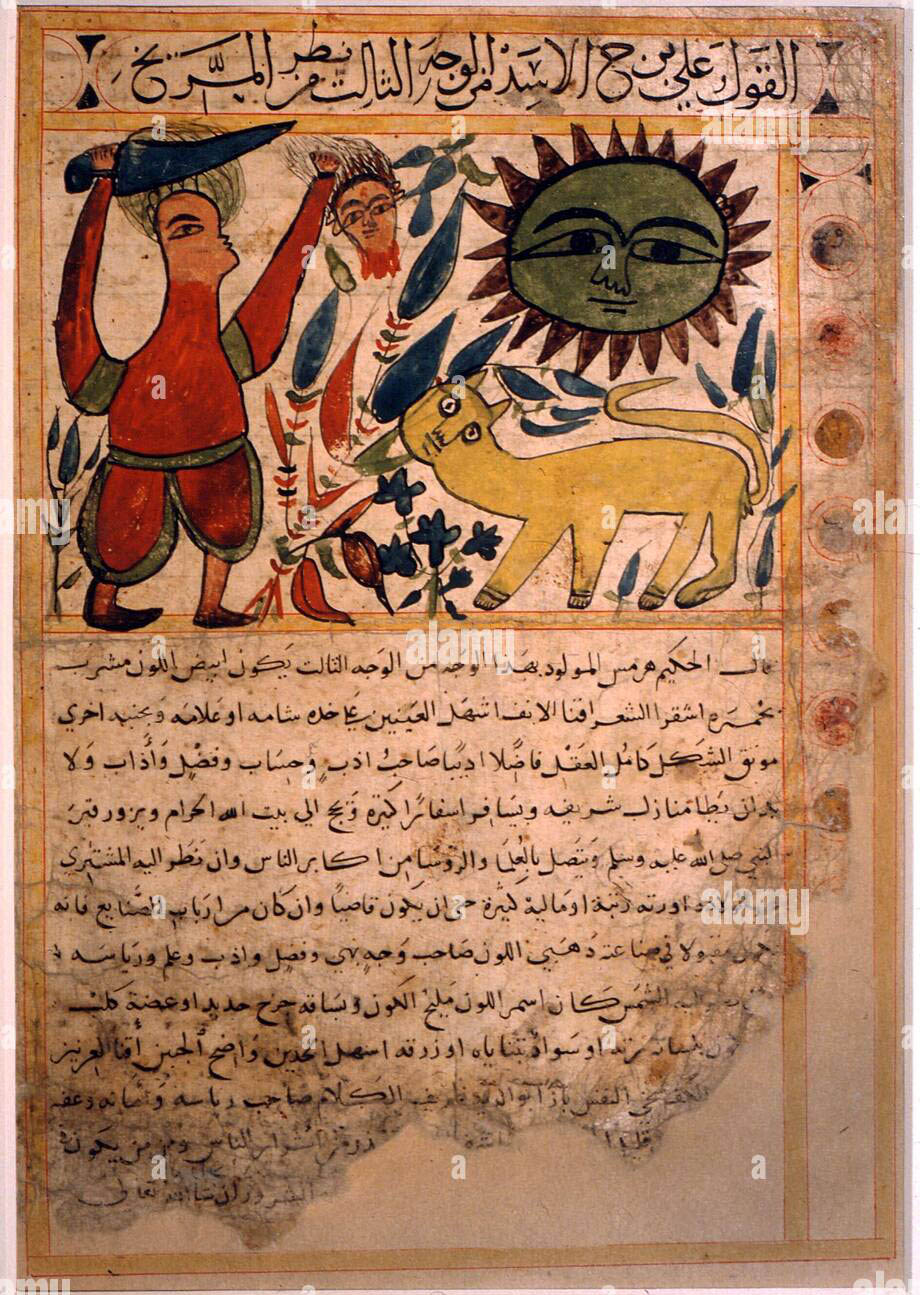 القول على برج الاسد من الوجه الثالث من نظر المريخ
قال الحكيم هرمس المولود بهذا الوجه من الوجه الثالث يكون ابيض اللون مشرب
بحمره اشقر الشعر اقنا الانف اشهل العينين على خده شامه او علامه وبجنبه اخرى
مونق الشكل كامل العقل فاضلا اديبا صاحب ادب وحساب وفضل وأداب ولا
بد ان يطا منازل شريفه ويسافر اسفارا كثيرة ويحج الى بيت الله الحرام ويزور قبر
النبي صلى الله عليه وسلم ويتصل بالعلما والروسا من اكابر الناس وان نظر اليه المشتري
اورته رتبة او مالية كبيرة حتى ان يكون قاضيا وان كان من ارباب الصنايع فانه
مقبولا في صناعته ذهبي اللون صاحب وجه بهي وفضل وادب وعلم ورياسه
الشمس كان اسمر اللون مليح الكون وبساقه جرح حديد او عضة كلب
او سواد بثناياه او زرقه اسهل الخدين واضح الجبين أقنا العرنين
سخي النفس بارا بوالديه ظريف الكلام صاحب رياسه
الناس ومن يكون في
ان شا الله تعالى
alamy